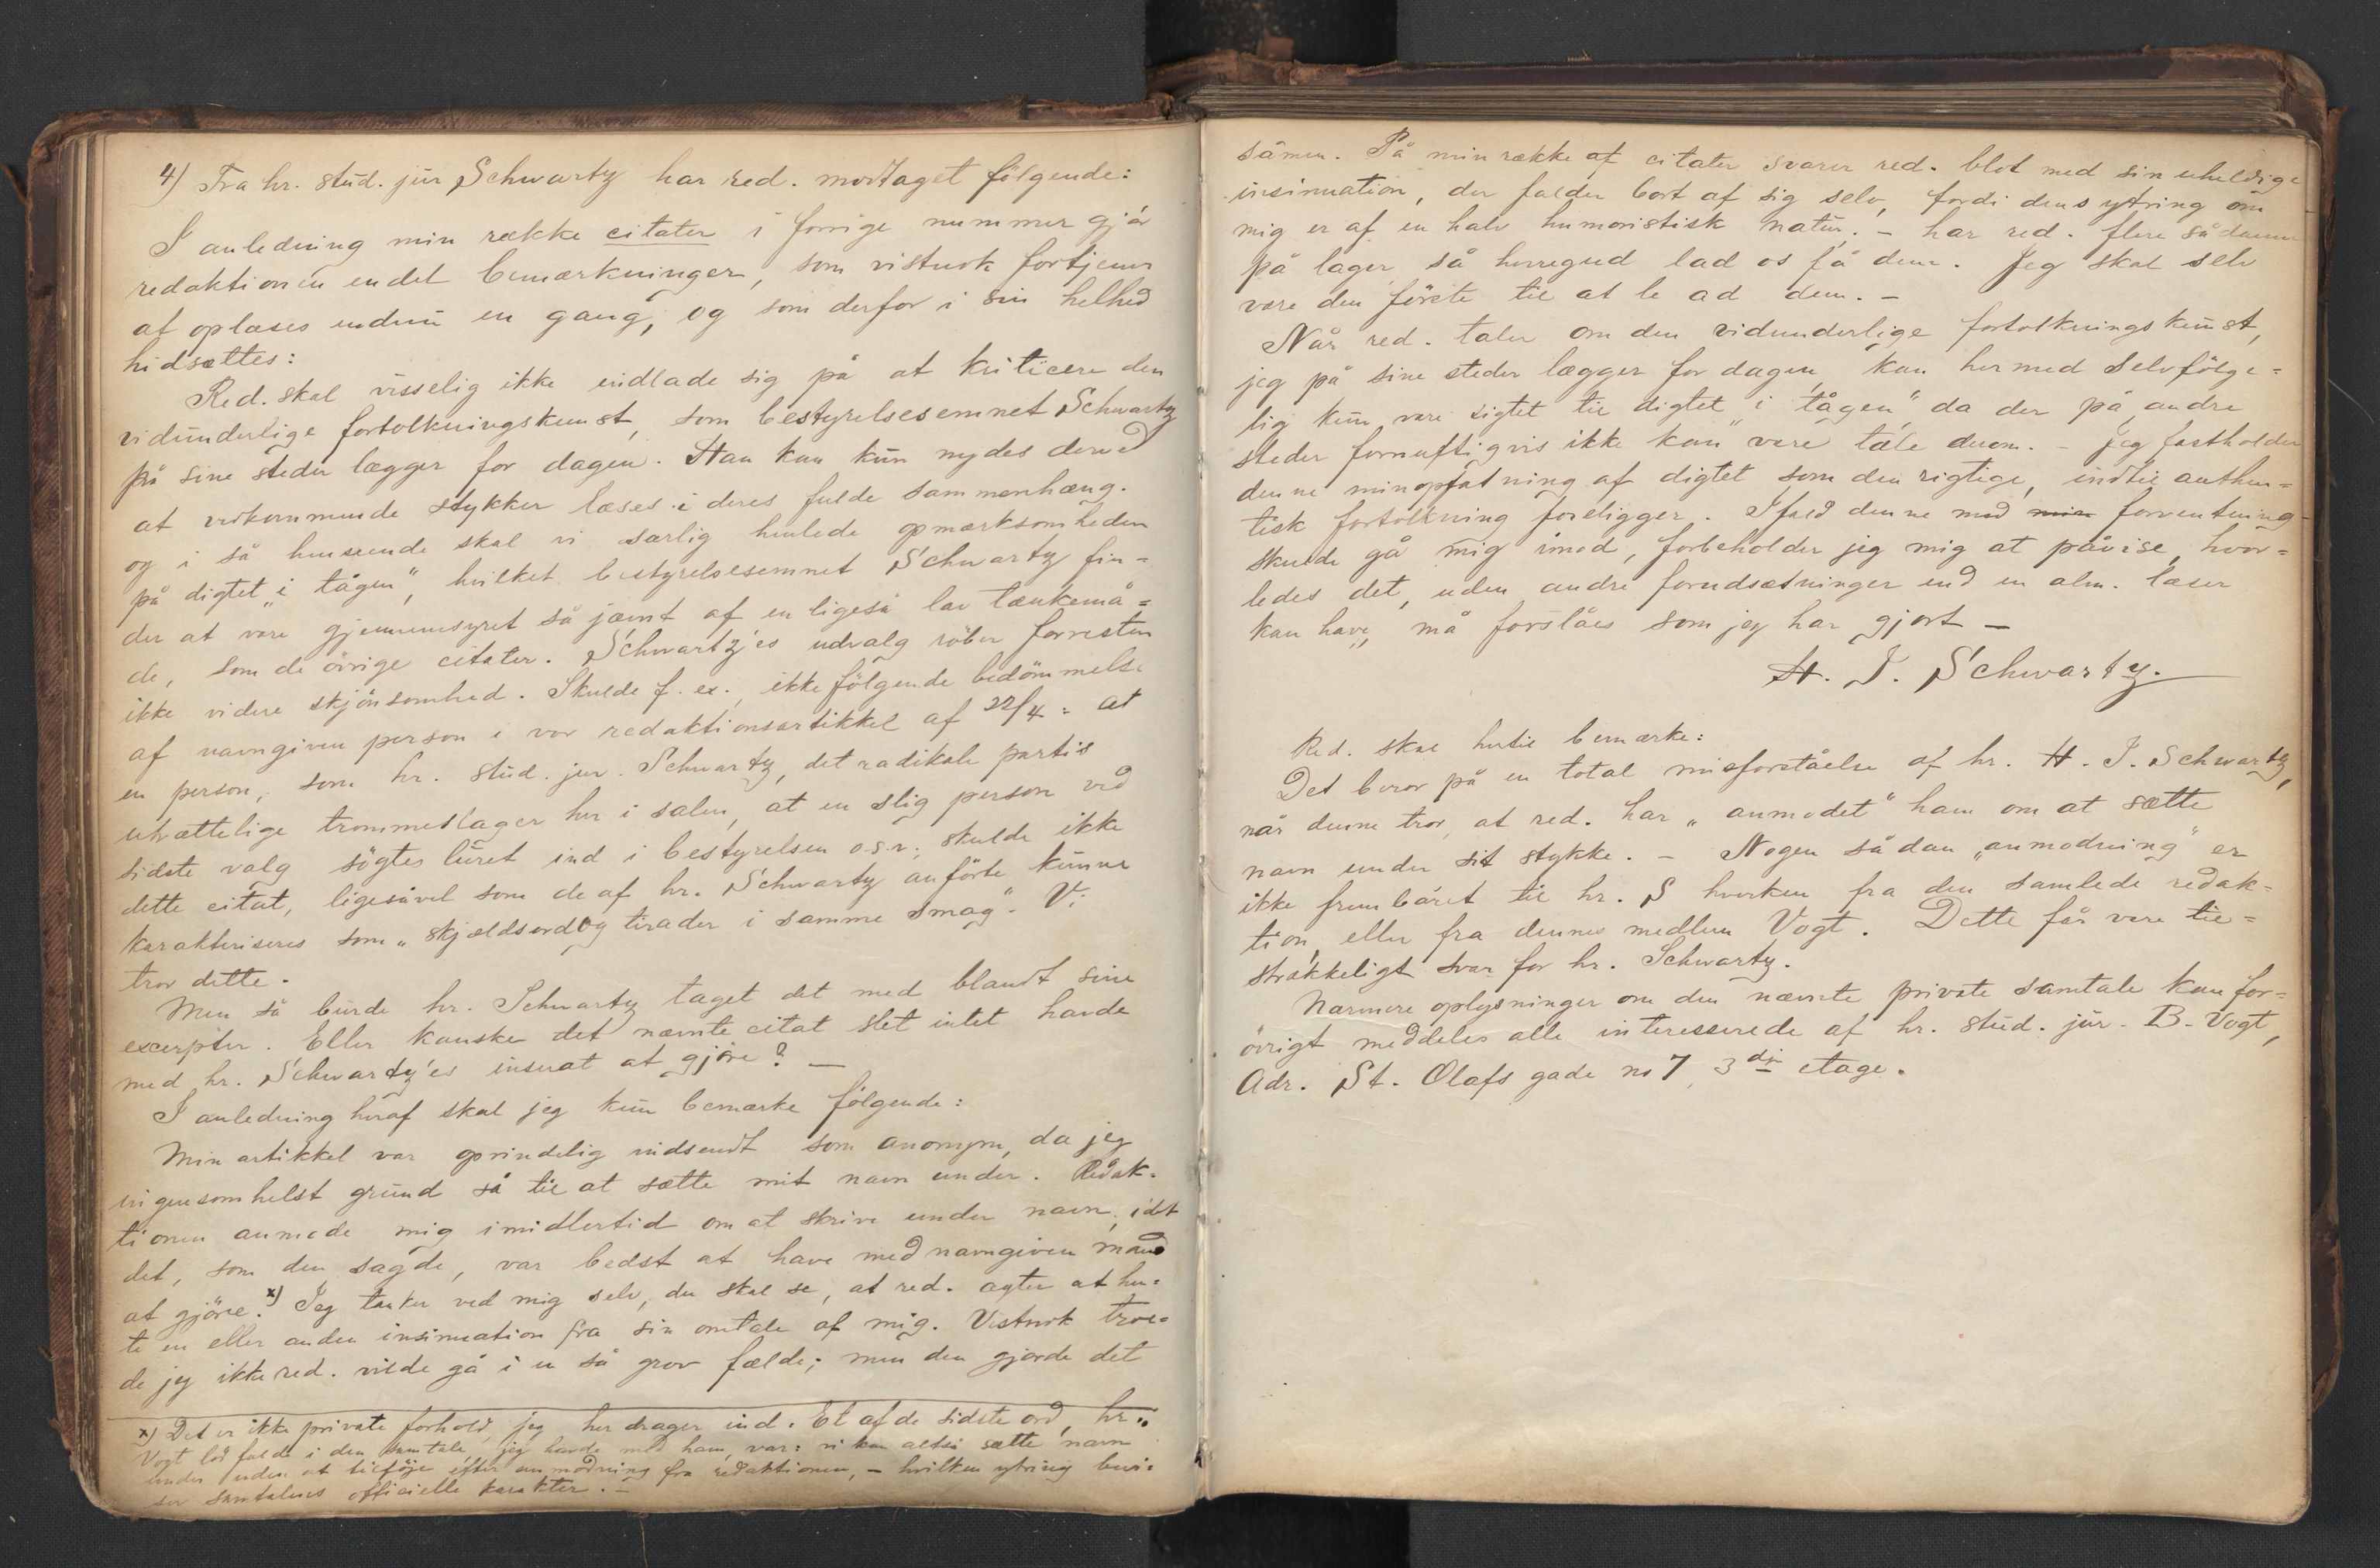 4) Fra hr. stud. jur Schwartz har red. modtaget følgende:
I anledning min række citater i forrige nummer gjör
redaktionen endel bemærkninger, som vistnok fortjener
at oplæses endnu en gang, og som derfor i sin helhed
hidsættes:
Red. skal visselig ikke indlade sig på at kriticere den
vidunderlige fortolkningskunst, som bestyrelsesemnet Schwartz
på sine steder lægger for dagen. Han kan kun nydes derved
at vedkommende stykker læses i deres fulde sammenhæng.
og i så henseende skal vi særlig henlede opmærksomheden
på digtet „i tågen", hvilket bestyrelsesemnet Schwartz fin=
der at være gjennemsyret så jævnt af en ligeså lav tænkemå=
de, som de övrige citater. Schwartz'es udvalg röber forresten
ikke videre skjönsomhed. Skulde f. ex., ikke fölgende bedömmelse
af navngiven person i vor redaktionsartikkel af 22/4: at
en person, som hr. stud. jur. Schwartz, det radikale partis
utrættelige trommeslager her i salen, at en slig person ved
sidste valg sögtes luret ind i bestyrelsen o.s.v., skulde ikke
dette citat, ligesåvel som de af hr. Schwartz anförte kunne
karakteriseres som „skjældsord og tirader i samme smag". Vi
tror dette.
Men så burde hr. Schwartz taget det med blandt sine
excerpter. Eller kanske det nævnte citat slet intet havde
med hr. Schwartz'es inserat at gjöre? —
I anledning heraf skal jeg kun bemærke fölgende:
Min artikkel var oprindelig indsendt som anonym, da jeg
ingensomhelst grund så til at sætte mit navn under. Redak-
tionen anmode mig imidlertid om at skrive under navn, idet
det, som den sagde, var bedst at have med navngiven mand
at gjöre.x) Jeg tænker ved mig selv, du skal se, at red. agter at hen=
te en eller anden insinuation fra sin omtale af mig. Vistnok troe=
de jeg ikke red. vilde gå i en så grov fælde; men den gjorde det
x) Det er ikke private forhold, jeg her drager ind. Et af de sidste ord, hr.
Vogt lod falde i den samtale, jeg havde med ham, var: vi kan altså sætte navn
under uden at tilföje efter anmodning fra redaktionen, — hvilken ytring bevi=
ser samtalens officielle karakter. —
såmen. På min række af citater svarer red. blot med sin uheldige
insinuation, der falder bort af sig selv, fordi dens ytring om
mig er af en halv humoristisk natur. — har red. flere sådanne
på lager, så herregud lad os få dem. Jeg skal selv
være den förste til at le ad dem. —
Når red. taler om den vidunderlige fortolkningskunst,
jeg på sine steder lægger for dagen, kan hermed selvfölge=
lig kun være sigtet til digtet „i tågen", da der på andre
steder fornuftigvis ikke kan være tale derom. — Jeg fastholder
denne min opfatning af digtet som den rigtige, indtil authen=
tisk fortolkning foreligger. Ifald denne med min forventning
skulde gå mig imod, forbeholder jeg mig at påvise, hvor=
ledes det, uden andre forudsætninger end en alm. læser
kan have, må forstås som jeg har gjort —
H. J. Schwartz.
Red. skal hertil bemærke:
Det beror på en total misforståelse af hr. H. J. Schwartz,
når denne tror, at red. har „anmodet" ham om at sætte
navn under sit stykke. — Nogen sådan „anmodning" er
ikke frembåret til hr. S hverken fra den samlede redak=
tion, eller fra dennes medlem Vogt. Dette får være til=
strækkeligt svar for hr. Schwartz.
Nærmere oplysninger om den nævnte private samtale kan for=
övrigt meddeles alle interesserede af hr. stud. jur. B. Vogt,
Adr. St. Olafs gade no 7, 3die etage.